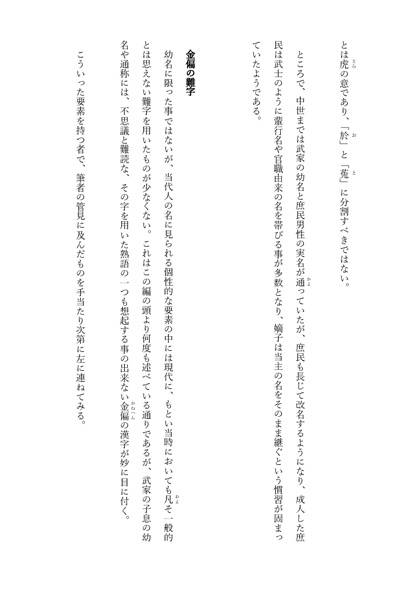 とは虎の意であり、「於」と「菟」に分割すべきではない。
ところで、中世までは武家の幼名と庶民男性の実名が通っていたが、庶民も長じて改名するようになり、成人した庶
民は武士のように輩行名や官職由来の名を帯びる事が多数となり、嫡子は当主の名をそのまま継ぐという慣習が固まっ
ていたようである。
金偏の難字
幼名に限った事ではないが、当代人の名に見られる個性的な要素の中には現代に、もとい当時においても凡そ一般的
とは思えない難字を用いたものが少なくない。これはこの編の頭より何度も述べている通りであるが、武家の子息の幼
名や通称には、不思議と難読な、その字を用いた熟語の一つも想起する事の出来ない金偏の漢字が妙に目に付く。
こういった要素を持つ者で、筆者の管見に及んだものを手当たり次第に左に連ねてみる。